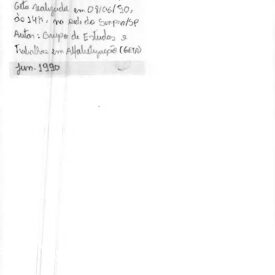 Geta realizada em 08/06/90,
às 14h, na sede do Sinpro/SP
Autor: Grupo de Estudos e
Trabalhos em Alfabetização (GETA)
jun. 1990